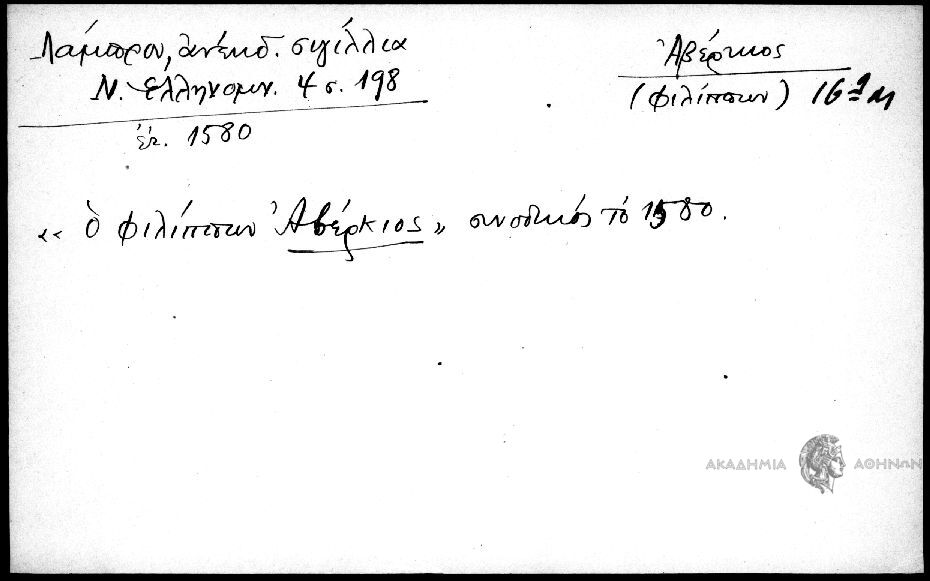 Λάμπρου, ἀνέκδ. σιγίλλια
Ν. Ἑλληνομν. 4 σ. 198
ἔτ. 1580
Ἀβέρκιος
(Φιλίππων) 16ος
«ὁ Φιλίππων Ἀβέρκιος» συνοδικός τὸ 1580.
ΑΚΑΔΗΜΙΑ ΑΘΗΝΩΝ